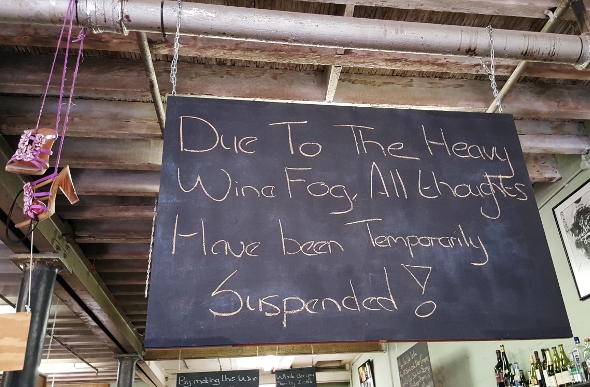 Due To The Heavy
Wine Fog, All thoughts
Have been Temporarily
Suspended!
making this Wine